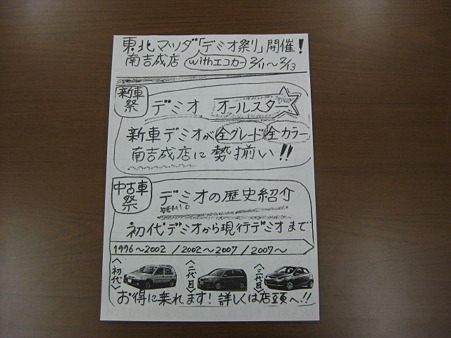 東北マツダ「デミオ祭り」開催!
南吉成店 withエコカー 3/11〜3/13
新車祭
デミオ オールスター
新車デミオが全グレード全カラー
南吉成店に勢揃い!!
中古車祭
デミオの歴史紹介
初代デミオから現行デミオまで
1996〜2002 / 2002〜2007 / 2007〜
〈初代〉 〈二代目〉 〈三代目〉
お得に乗れます! 詳しくは店頭へ!!